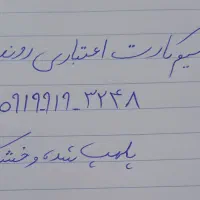 سیم کارت اعتباری روند
۰۹۱۹_۹۱۹_۳۲۴۸
پلمپ شده و خشک